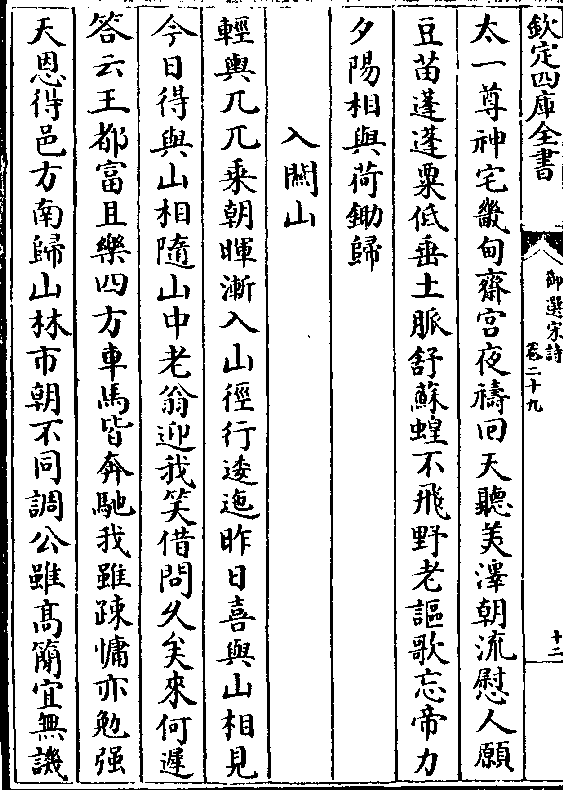 欽定四庫全書
御選宋詩
卷二十九
十二
太一尊神宅畿甸齋宮夜禱回天聽美澤朝流慰人願
豆苗蓬蓬粟低垂土脈舒蘇蝗不飛野老謳歌忘帝力
夕陽相與荷鋤歸
入關山
輕輿兀兀乗朝暉漸入山徑行逶迤昨日喜與山相見
今日得與山相隨山中老翁迎我笑借問久矣來何遲
答云王都富且樂四方車馬皆奔馳我雖踈慵亦勉强
天恩得邑方南歸山林市朝不同調公雖髙簡宜無譏